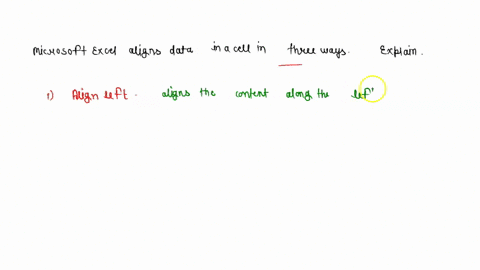 Microsoft Excel aligns data in a cell in three ways. Explain.
1) Align left. aligns the content along the lef